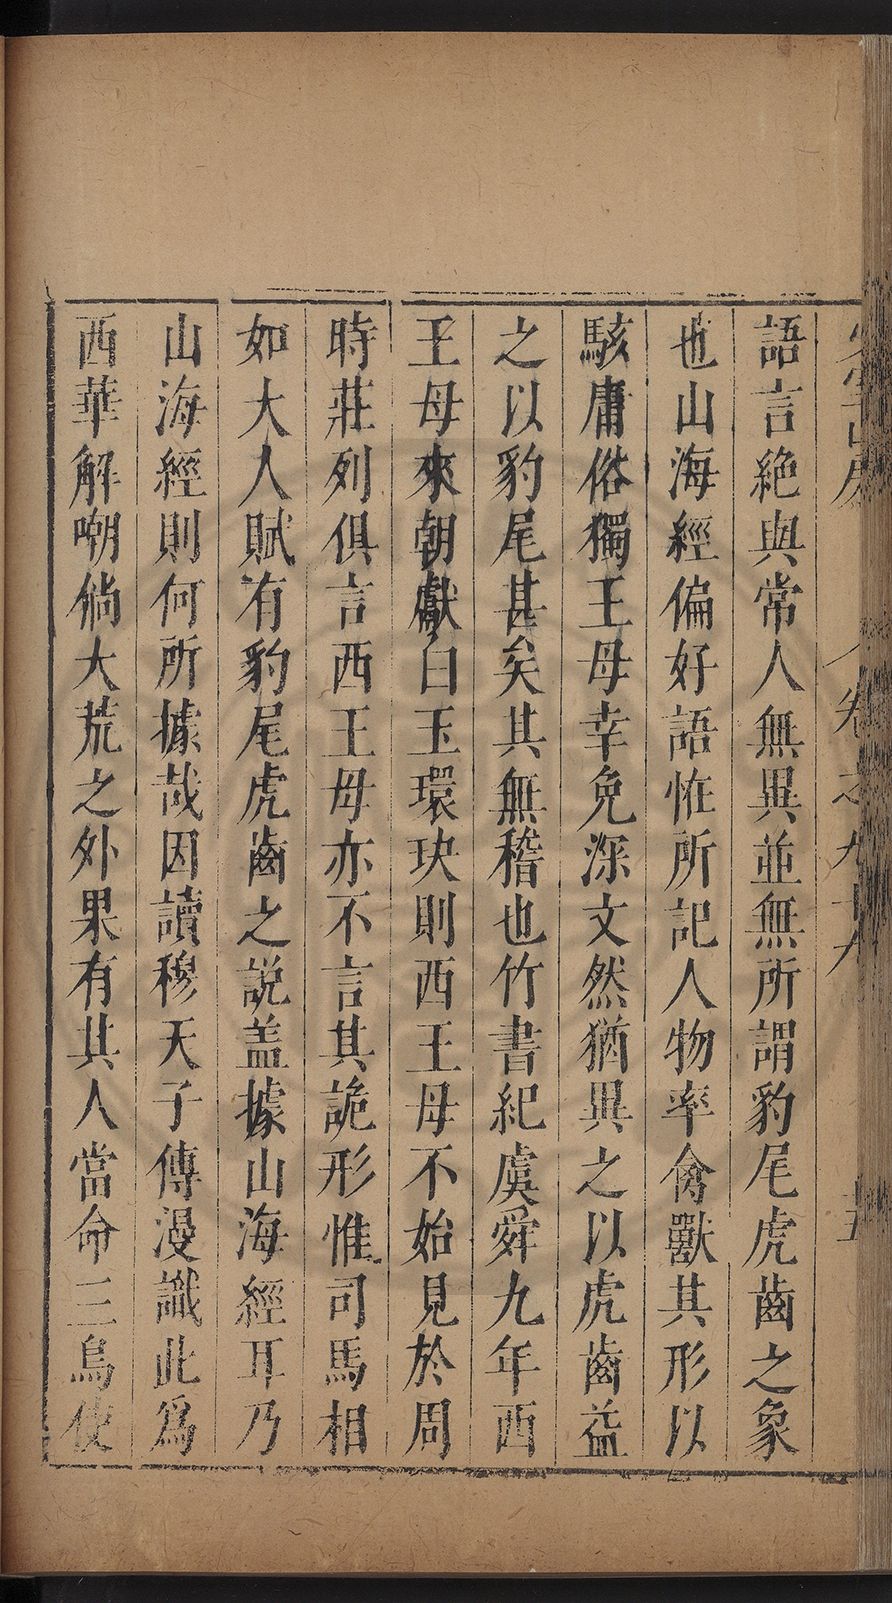 語言絶與常人無異並無所謂豹尾虎齒之象
也山海經偏好語恠所記人物率禽獸其形以
駭庸俗獨王母幸免深文然猶異之以虎齒益
之以豹尾甚矣其無稽也竹書紀虞舜九年西
王母來朝獻白玉環玦則西王母不始見於周
時莊列俱言西王母亦不言其詭形惟司馬相
如大人賦有豹尾虎齒之説盖據山海經耳乃
山海經則何所據哉因讀穆天子傳漫識此爲
西華解嘲倘大荒之外果有其人當命三鳥使